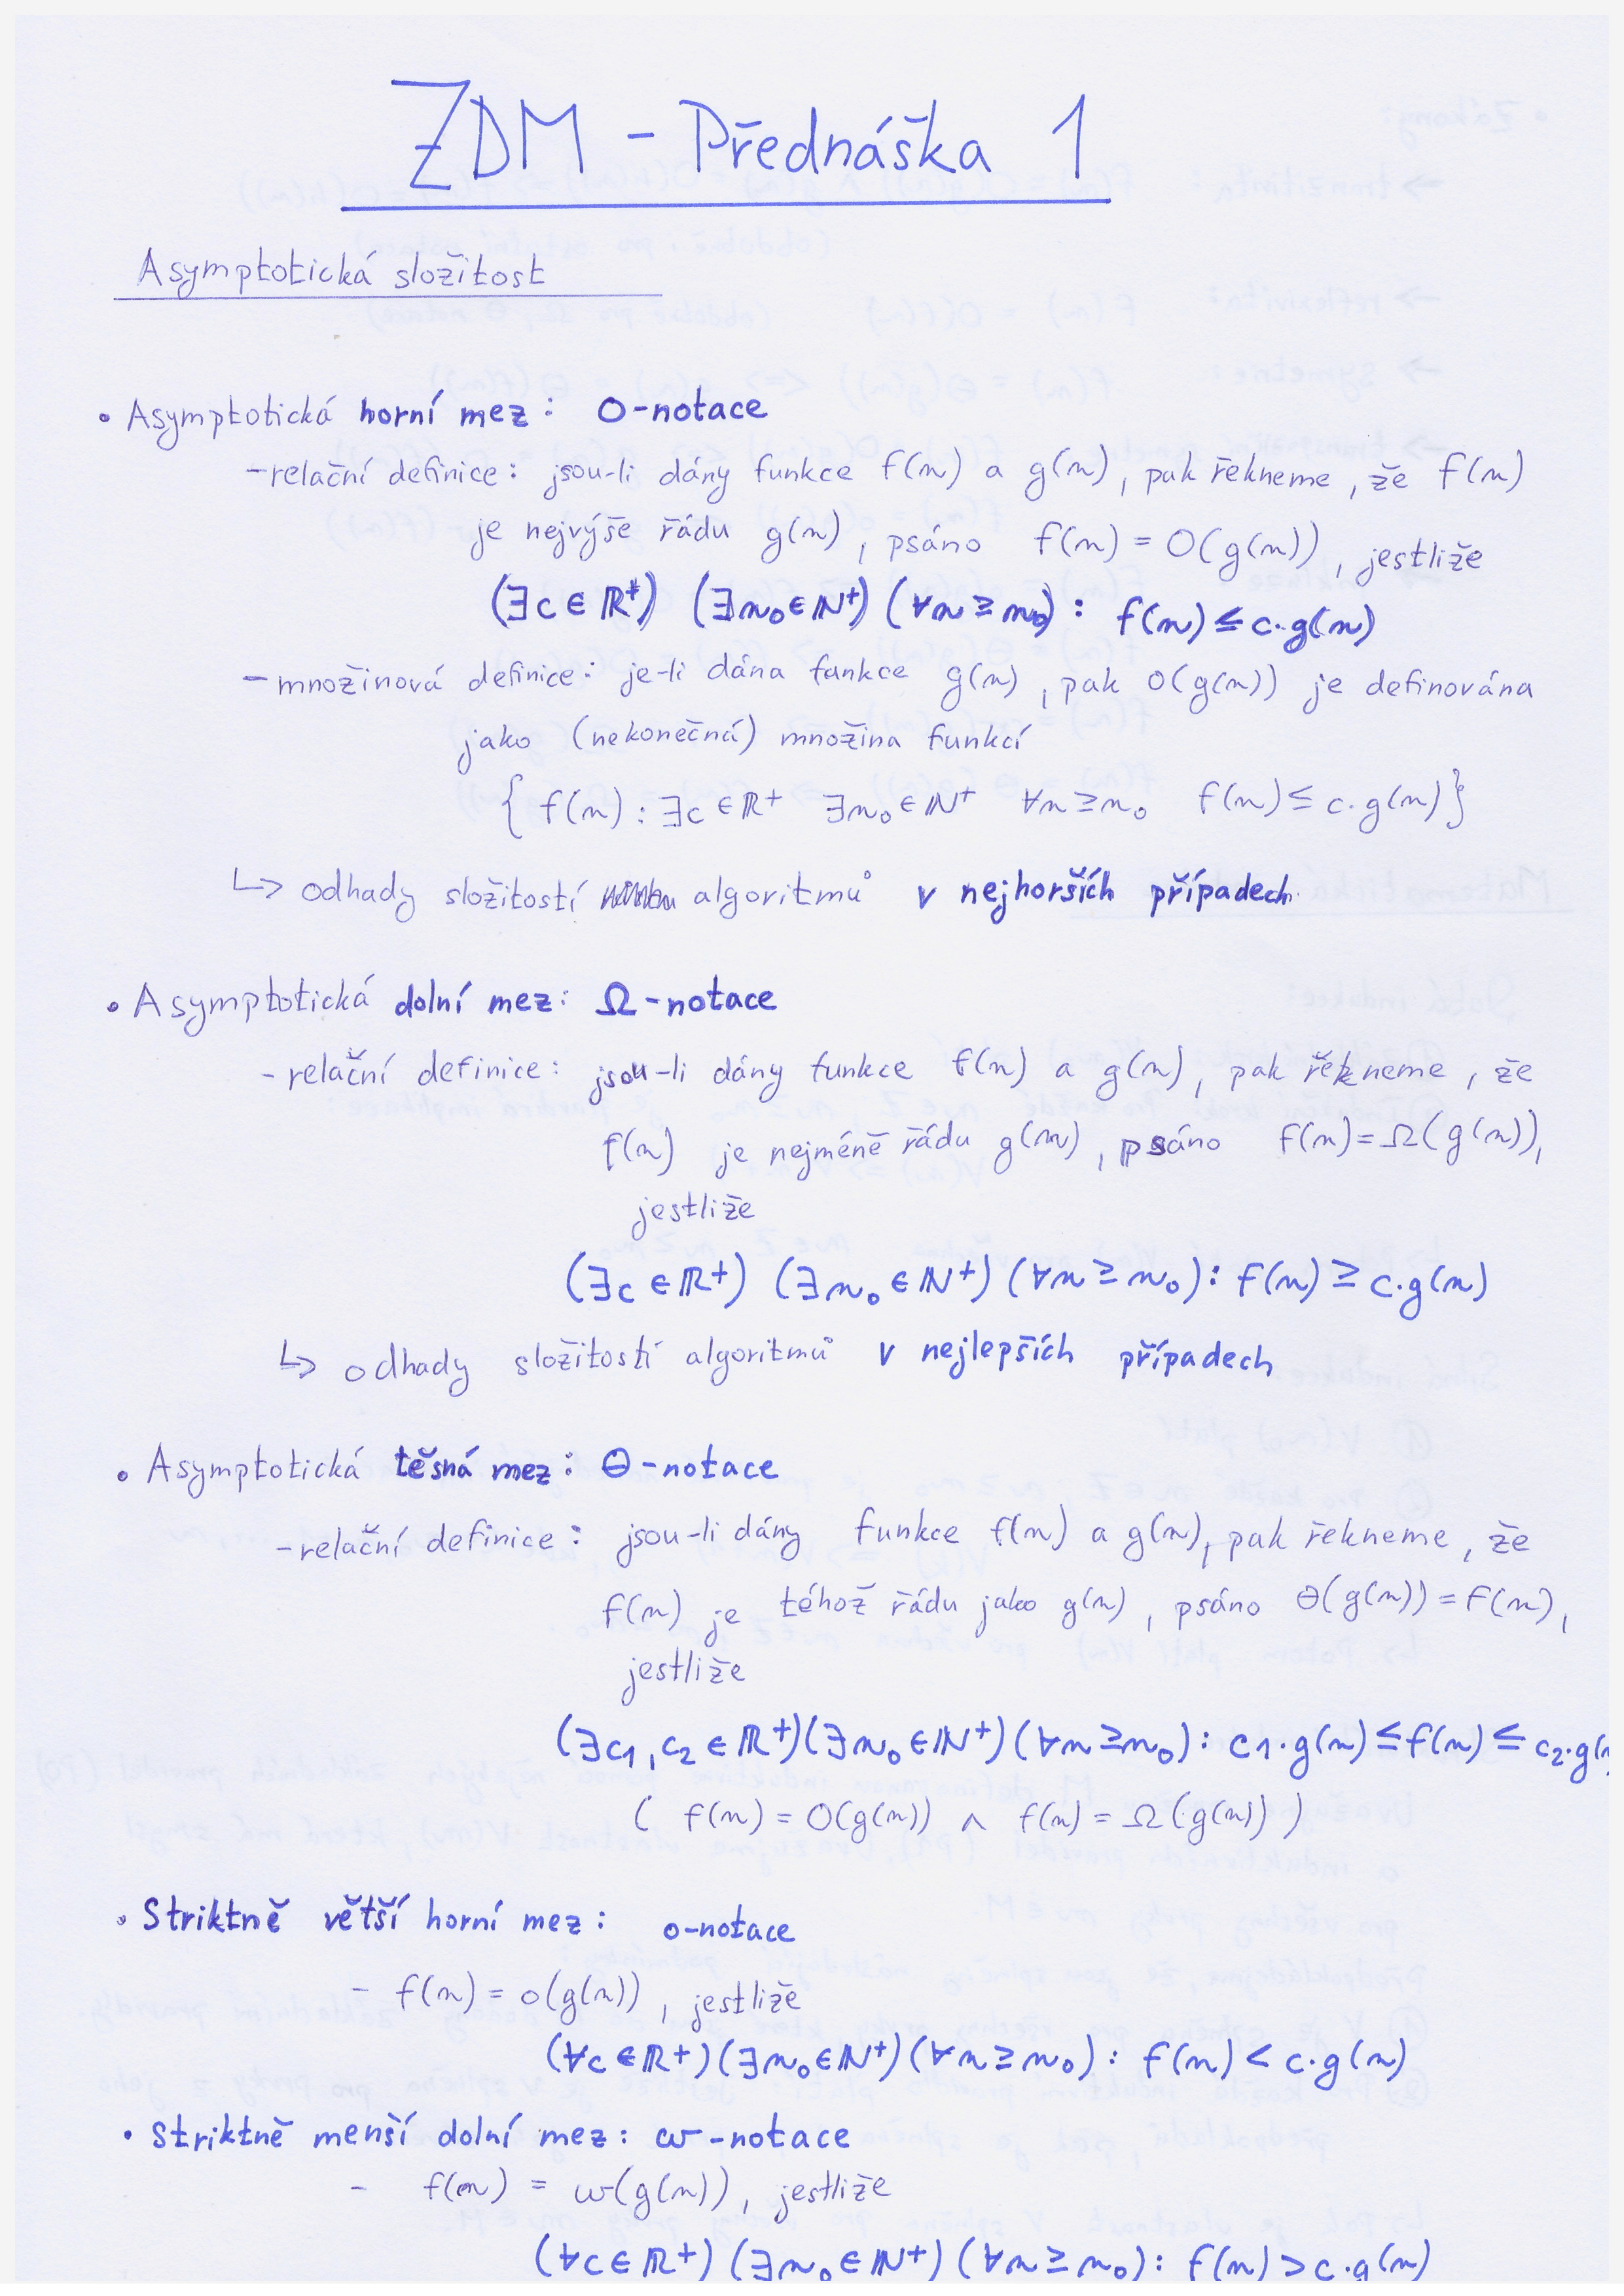 ZDM - Přednáška 1
Asymptotická složitost
• Asymptotická horní mez: O-notace
- relační definice: jsou-li dány funkce f(n) a g(n), pak řekneme, že f(n)
je nejvýše řádu g(n), psáno f(n) = O(g(n)), jestliže
(∃c ∈ ℝ⁺) (∃n₀ ∈ ℕ⁺) (∀n ≥ n₀) : f(n) ≤ c·g(n)
- množinová definice: je-li dána funkce g(n), pak O(g(n)) je definována
jako (nekonečná) množina funkcí
{ f(n) : ∃c ∈ ℝ⁺ ∃n₀ ∈ ℕ⁺ ∀n ≥ n₀ f(n) ≤ c·g(n) }
↳ odhady složitostí algoritmů v nejhorších případech
• Asymptotická dolní mez: Ω-notace
- relační definice: jsou-li dány funkce f(n) a g(n), pak řekneme, že
f(n) je nejméně řádu g(n), psáno f(n) = Ω(g(n)),
jestliže
(∃c ∈ ℝ⁺) (∃n₀ ∈ ℕ⁺) (∀n ≥ n₀) : f(n) ≥ c·g(n)
↳ odhady složitostí algoritmů v nejlepších případech
• Asymptotická těsná mez: Θ-notace
- relační definice: jsou-li dány funkce f(n) a g(n), pak řekneme, že
f(n) je téhož řádu jako g(n), psáno Θ(g(n)) = f(n),
jestliže
(∃c₁, c₂ ∈ ℝ⁺)(∃n₀ ∈ ℕ⁺)(∀n ≥ n₀) : c₁·g(n) ≤ f(n) ≤ c₂·g(n
( f(n) = O(g(n)) ∧ f(n) = Ω(g(n)) )
• Striktně větší horní mez: o-notace
- f(n) = o(g(n)), jestliže
(∀c ∈ ℝ⁺)(∃n₀ ∈ ℕ⁺)(∀n ≥ n₀) : f(n) < c·g(n)
• Striktně menší dolní mez: ω-notace
- f(n) = ω(g(n)), jestliže
(∀c ∈ ℝ⁺) (∃n₀ ∈ ℕ⁺) (∀n ≥ n₀) : f(n) > c·g(n)